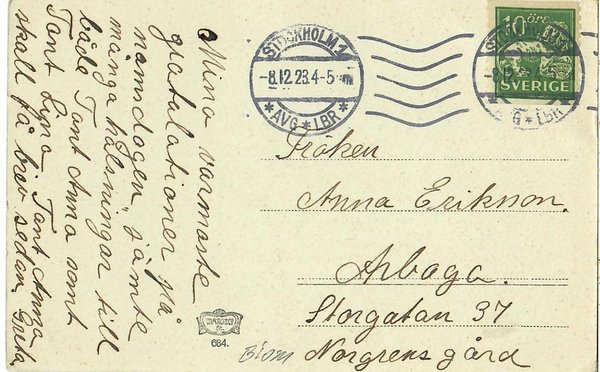 Mina varmaste
gratulationer på
namnsdagen, jämte
många hälsningar till
både Tant Anna samt
Tant Lyna. Tant Anna
skall få brev sedan. Greta
STOCKHOLM 1
-8.12.23.4-5
*AVG*LBR*
10 öre
SVERIGE
Fröken
Anna Erikson.
Arboga.
Storgatan 37
Norgrens gård
684.